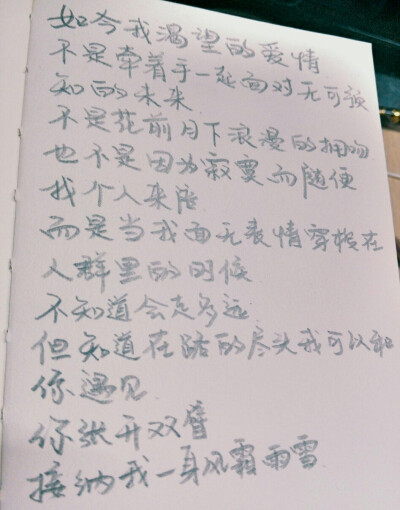 如今我渴望的爱情
不是牵着手一起面对无可预
知的未来
不是花前月下浪漫的拥吻
也不是因为寂寞而随便
找个人来陪
而是当我面无表情穿梭在
人群里的时候
不知道会走多远
但知道在路的尽头我可以和
你遇见
你张开双臂
接纳我一身风霜雨雪